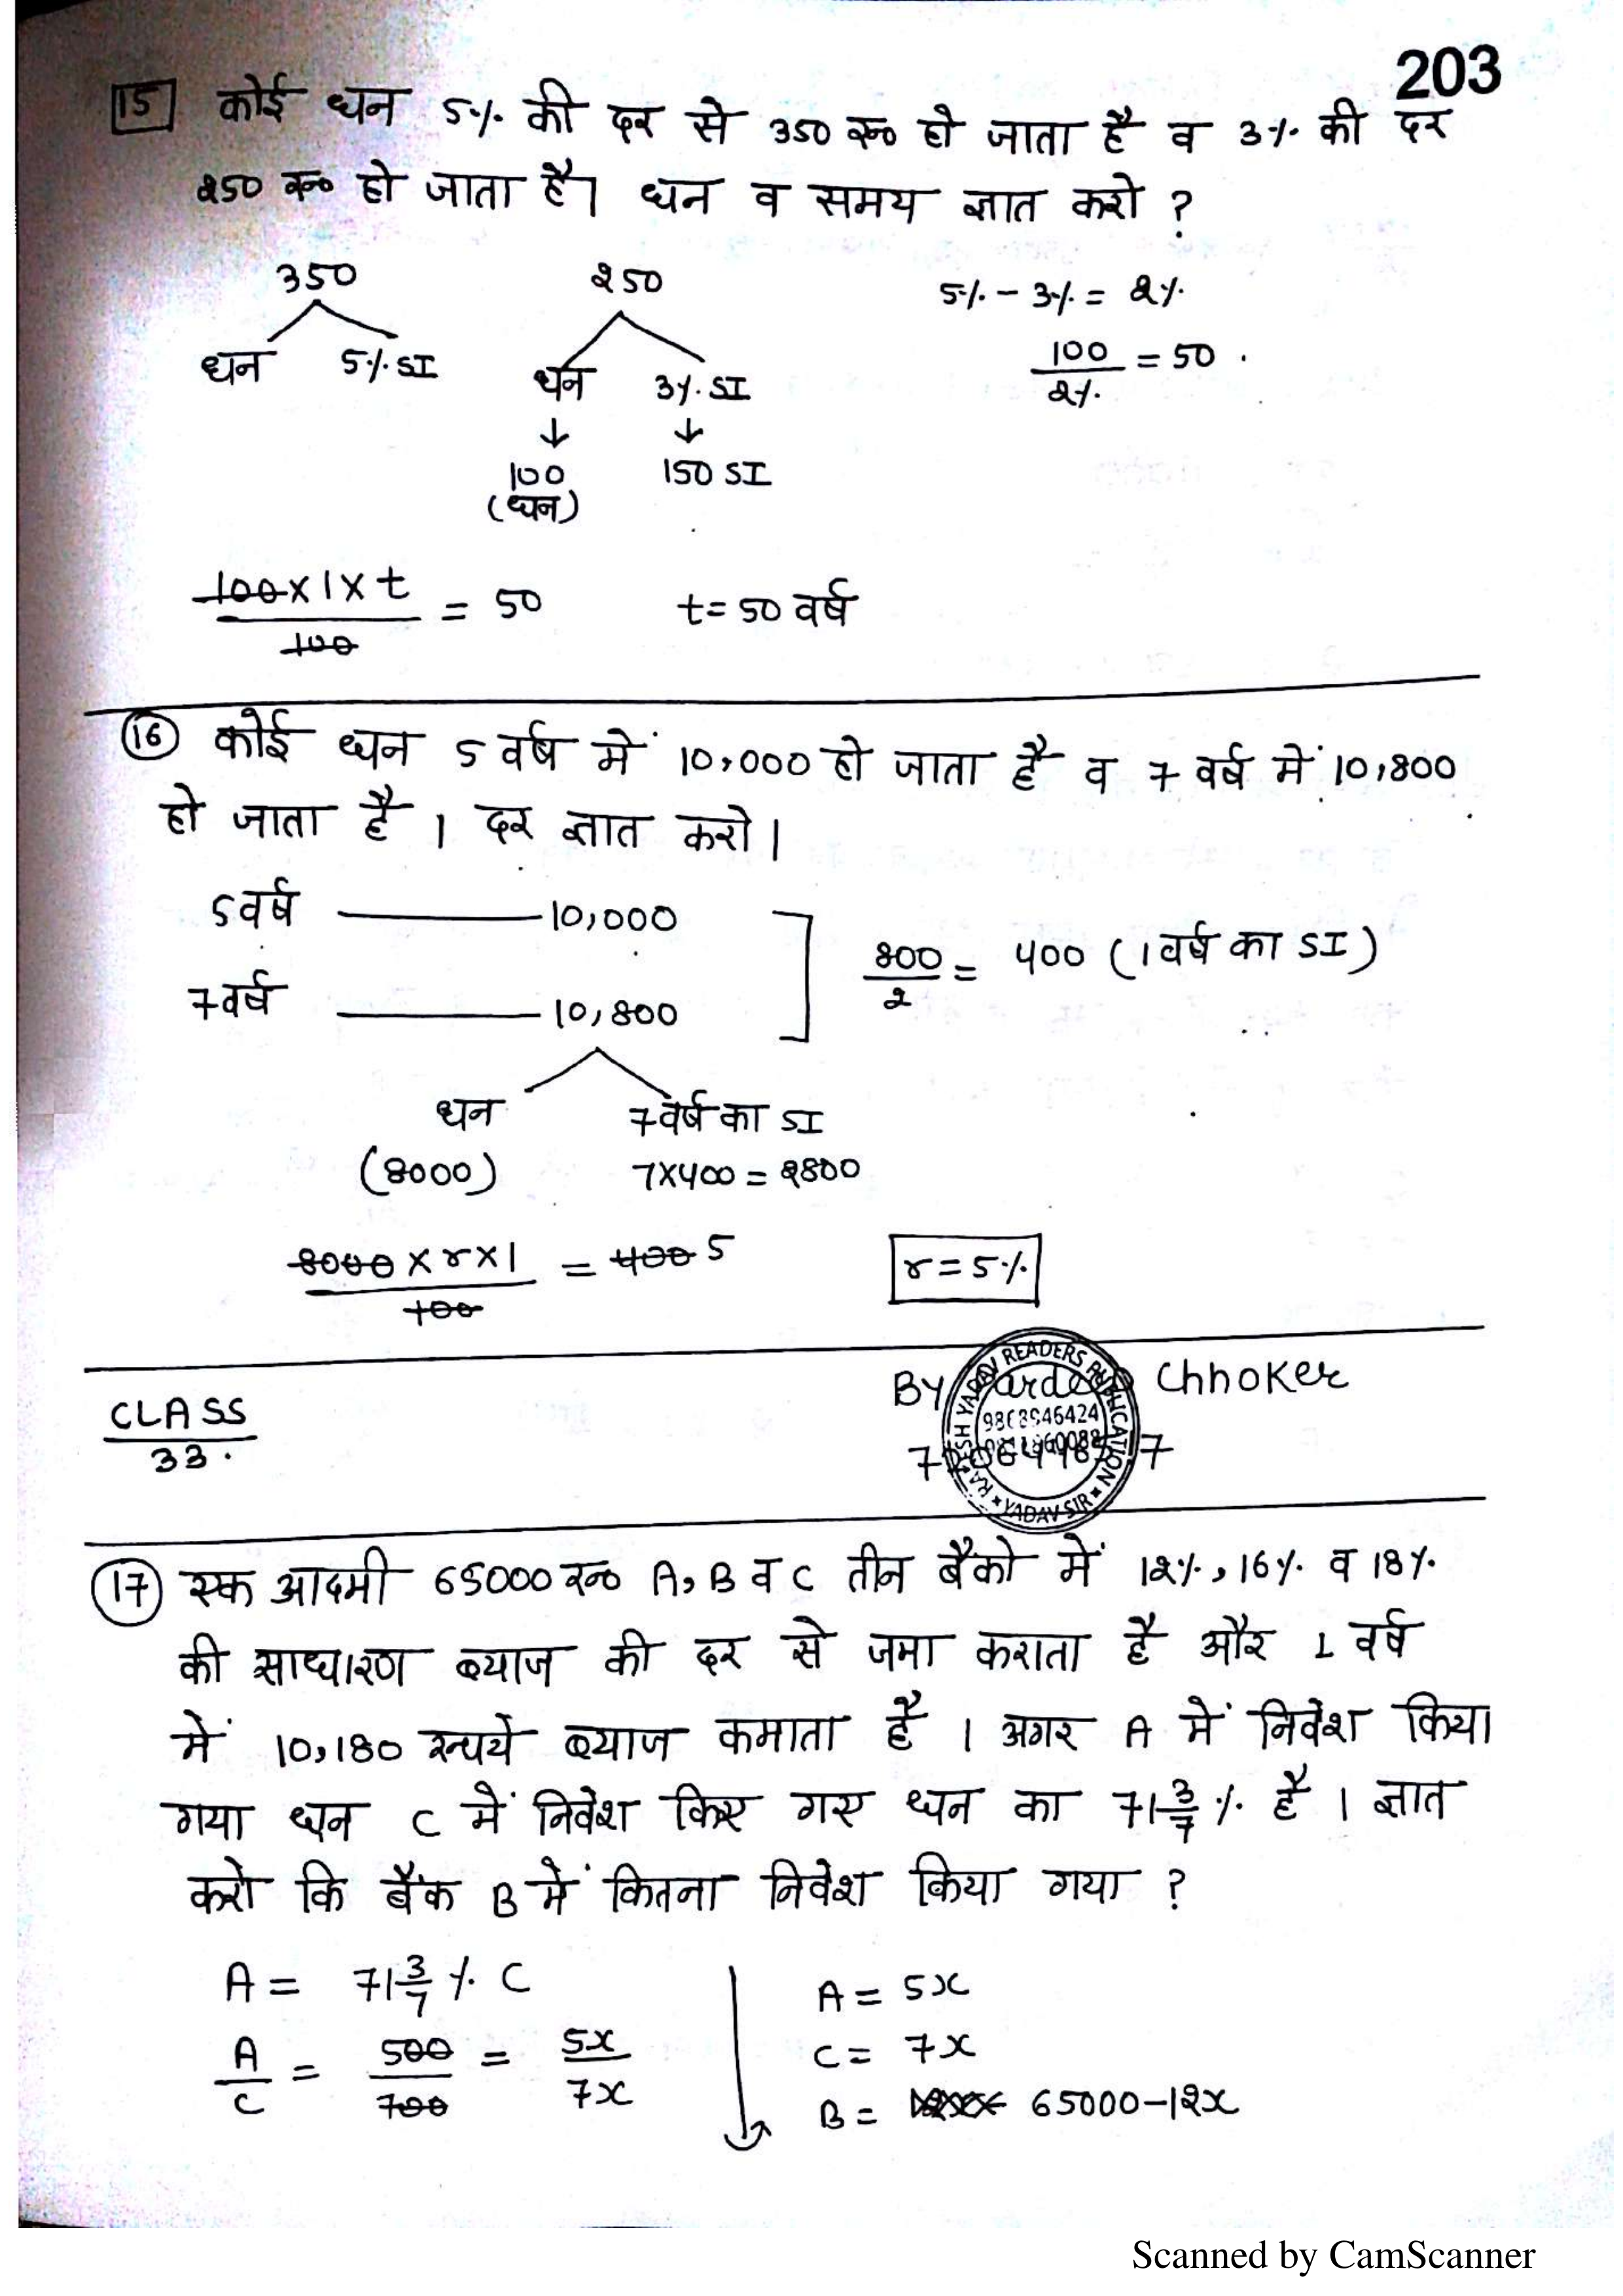 203
15 कोई धन 5% की दर से 350 रू० हो जाता है व 3% की दर
250 रू० हो जाता है। धन व समय ज्ञात करो ?
350 250 5% - 3% = 2%
धन 5% SI धन 3% SI 100/2% = 50
↓ ↓
100 150 SI
(धन)
100×1×t/100 = 50 t = 50 वर्ष
16 कोई धन 5 वर्ष में 10,000 हो जाता है व 7 वर्ष में 10,800
हो जाता है । दर ज्ञात करो।
5 वर्ष —— 10,000
800/2 = 400 (1 वर्ष का SI)
7 वर्ष —— 10,800
धन 7 वर्ष का SI
(8000) 7×400 = 2800
8000×r×1/100 = 400 5 r = 5%
BY Chhoker
CLASS
33.
RAKESH YADAV READERS PUBLICATION
9868946424
YADAV SIR
17 एक आदमी 65000 रू० A, B व C तीन बैंको में 12%, 16% व 18%
की साधारण ब्याज की दर से जमा कराता है और 1 वर्ष
में 10,180 रूपये ब्याज कमाता है । अगर A में निवेश किया
गया धन C में निवेश किए गए धन का 71 3/7 % है । ज्ञात
करो कि बैंक B में कितना निवेश किया गया ?
A = 71 3/7 % C A = 5x
A/C = 500/700 = 5x/7x C = 7x
B = 65000-12x
Scanned by CamScanner